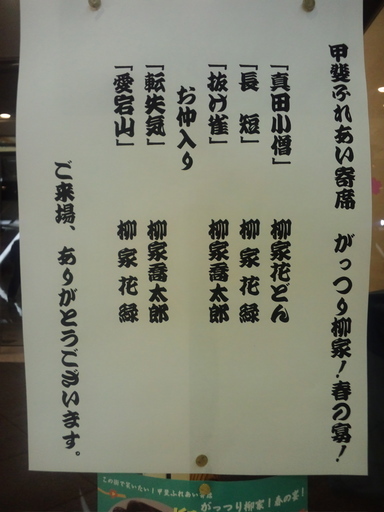 甲斐ふれあい寄席　がっつり柳家！春の宴！
「真田小僧」　柳家花どん
「長　短」　柳家花緑
「抜け雀」　柳家喬太郎
お仲入り
「転失気」　柳家喬太郎
「愛宕山」　柳家花緑
ご来場、ありがとうございます。
この街で笑いたい！甲斐ふれあい寄席
がっつり柳家！春の宴！